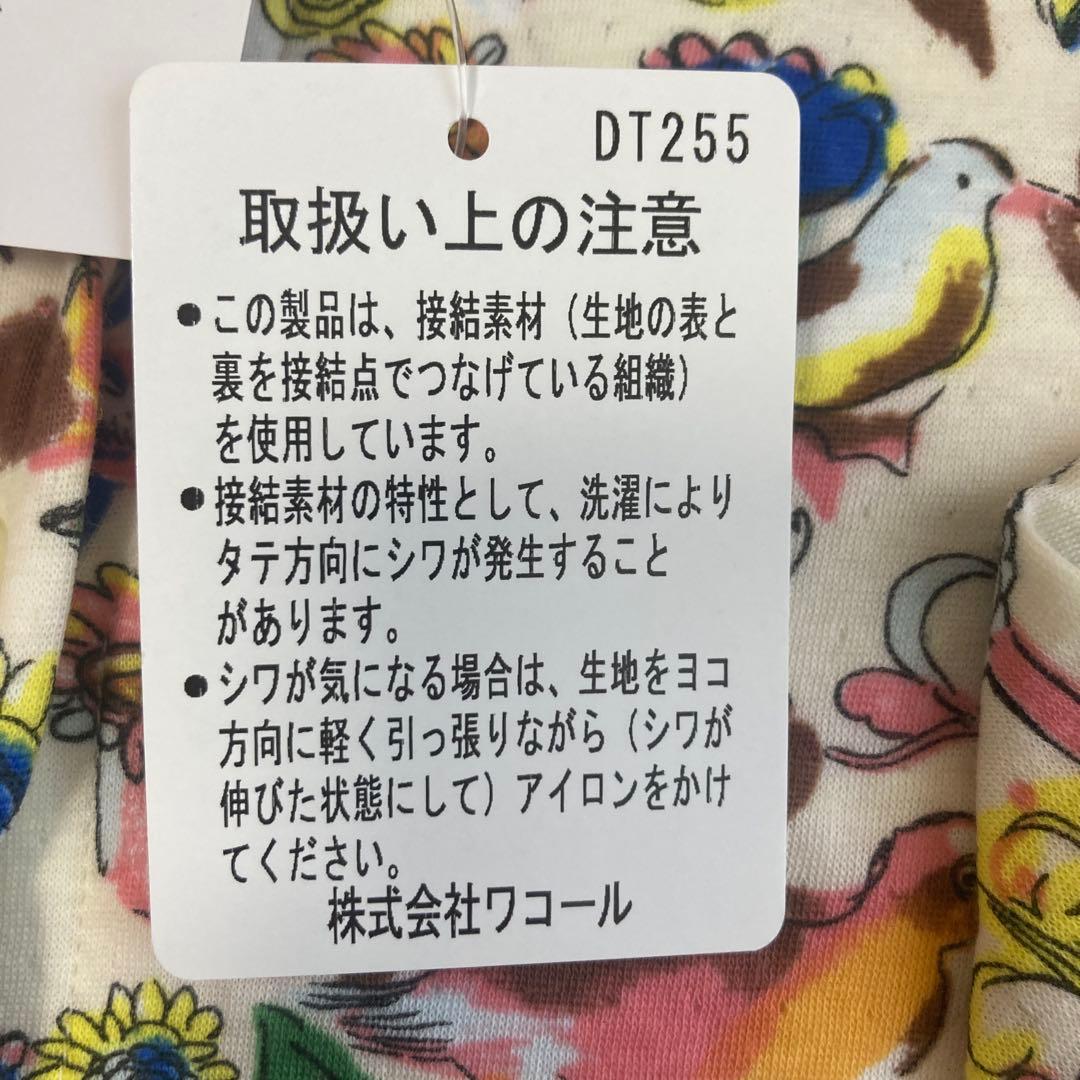 DT255
取扱い上の注意
●この製品は、接結素材（生地の表と
裏を接結点でつなげている組織）
を使用しています。
●接結素材の特性として、洗濯により
タテ方向にシワが発生すること
があります。
●シワが気になる場合は、生地をヨコ
方向に軽く引っ張りながら（シワが
伸びた状態にして）アイロンをかけ
てください。
株式会社ワコール